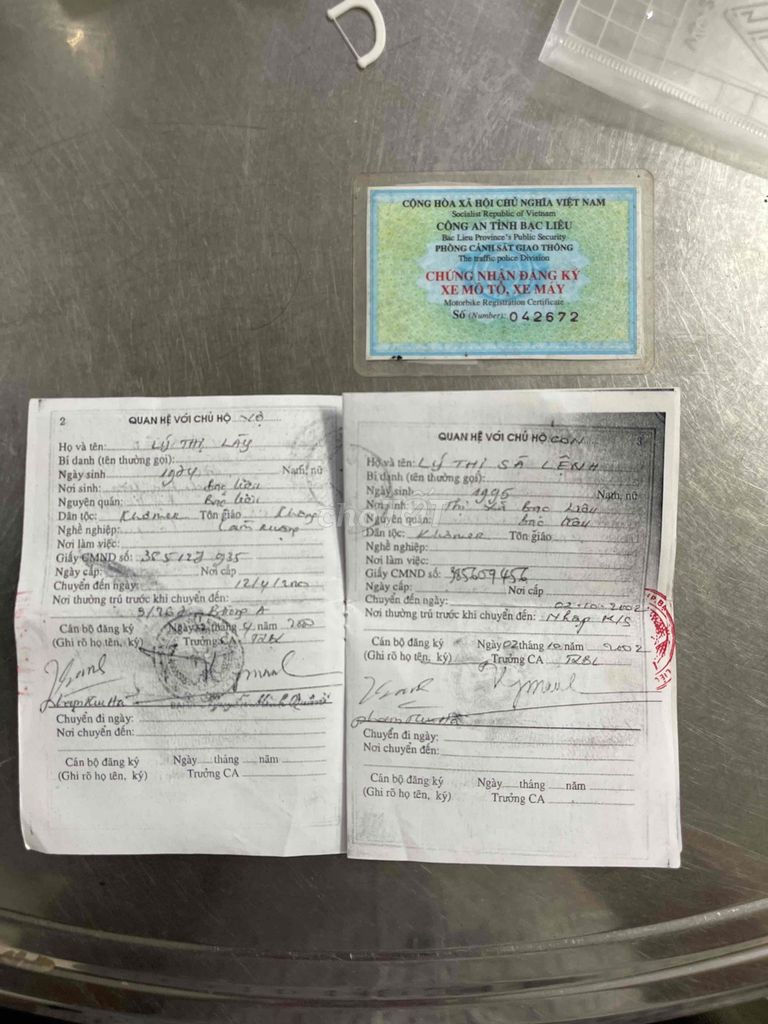 CỘNG HÒA XÃ HỘI CHỦ NGHĨA VIỆT NAM
Socialist Republic of Vietnam
CÔNG AN TỈNH BẠC LIÊU
Bac Lieu Province's Public Security
PHÒNG CẢNH SÁT GIAO THÔNG
The traffic police Division
CHỨNG NHẬN ĐĂNG KÝ
XE MÔ TÔ, XE MÁY
Motorbike Registration Certificate
Số (Number): 042672
2 QUAN HỆ VỚI CHỦ HỘ Vợ
Họ và tên: LÝ THỊ LÀY
Bí danh (tên thường gọi):
Ngày sinh 1974 Nam, nữ
Nơi sinh: Bạc Liêu
Nguyên quán: Bạc Liêu
Dân tộc: Khơmer Tôn giáo Không
Nghề nghiệp: Làm ruộng
Nơi làm việc:
Giấy CMND số: 385127935
Ngày cấp: Nơi cấp
Chuyển đến ngày: 12/4/2000
Nơi thường trú trước khi chuyển đến:
Cán bộ đăng ký Ngày tháng 4 năm 200
(Ghi rõ họ tên, ký) Trưởng CA TXBL
Chuyển đi ngày:
Nơi chuyển đến:
Cán bộ đăng ký Ngày tháng năm
(Ghi rõ họ tên, ký) Trưởng CA
QUAN HỆ VỚI CHỦ HỘ CON 3
Họ và tên: LÝ THỊ SÀ LỆNH
Bí danh (tên thường gọi):
Ngày sinh 1995 Nam, nữ
Nơi sinh: Bạc Liêu
Nguyên quán: Bạc Liêu
Dân tộc: Khơmer Tôn giáo
Nghề nghiệp:
Nơi làm việc:
Giấy CMND số: 385609456
Ngày cấp: Nơi cấp
Chuyển đến ngày: 02-10-2002
Nơi thường trú trước khi chuyển đến: Nhập K/S
Cán bộ đăng ký Ngày 02 tháng 10 năm 2002
(Ghi rõ họ tên, ký) Trưởng CA TXBL
Chuyển đi ngày:
Nơi chuyển đến:
Cán bộ đăng ký Ngày tháng năm
(Ghi rõ họ tên, ký) Trưởng CA
chợTỐT